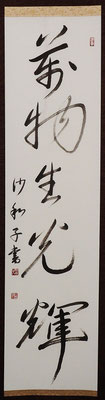 萬物生光輝
沙和子書